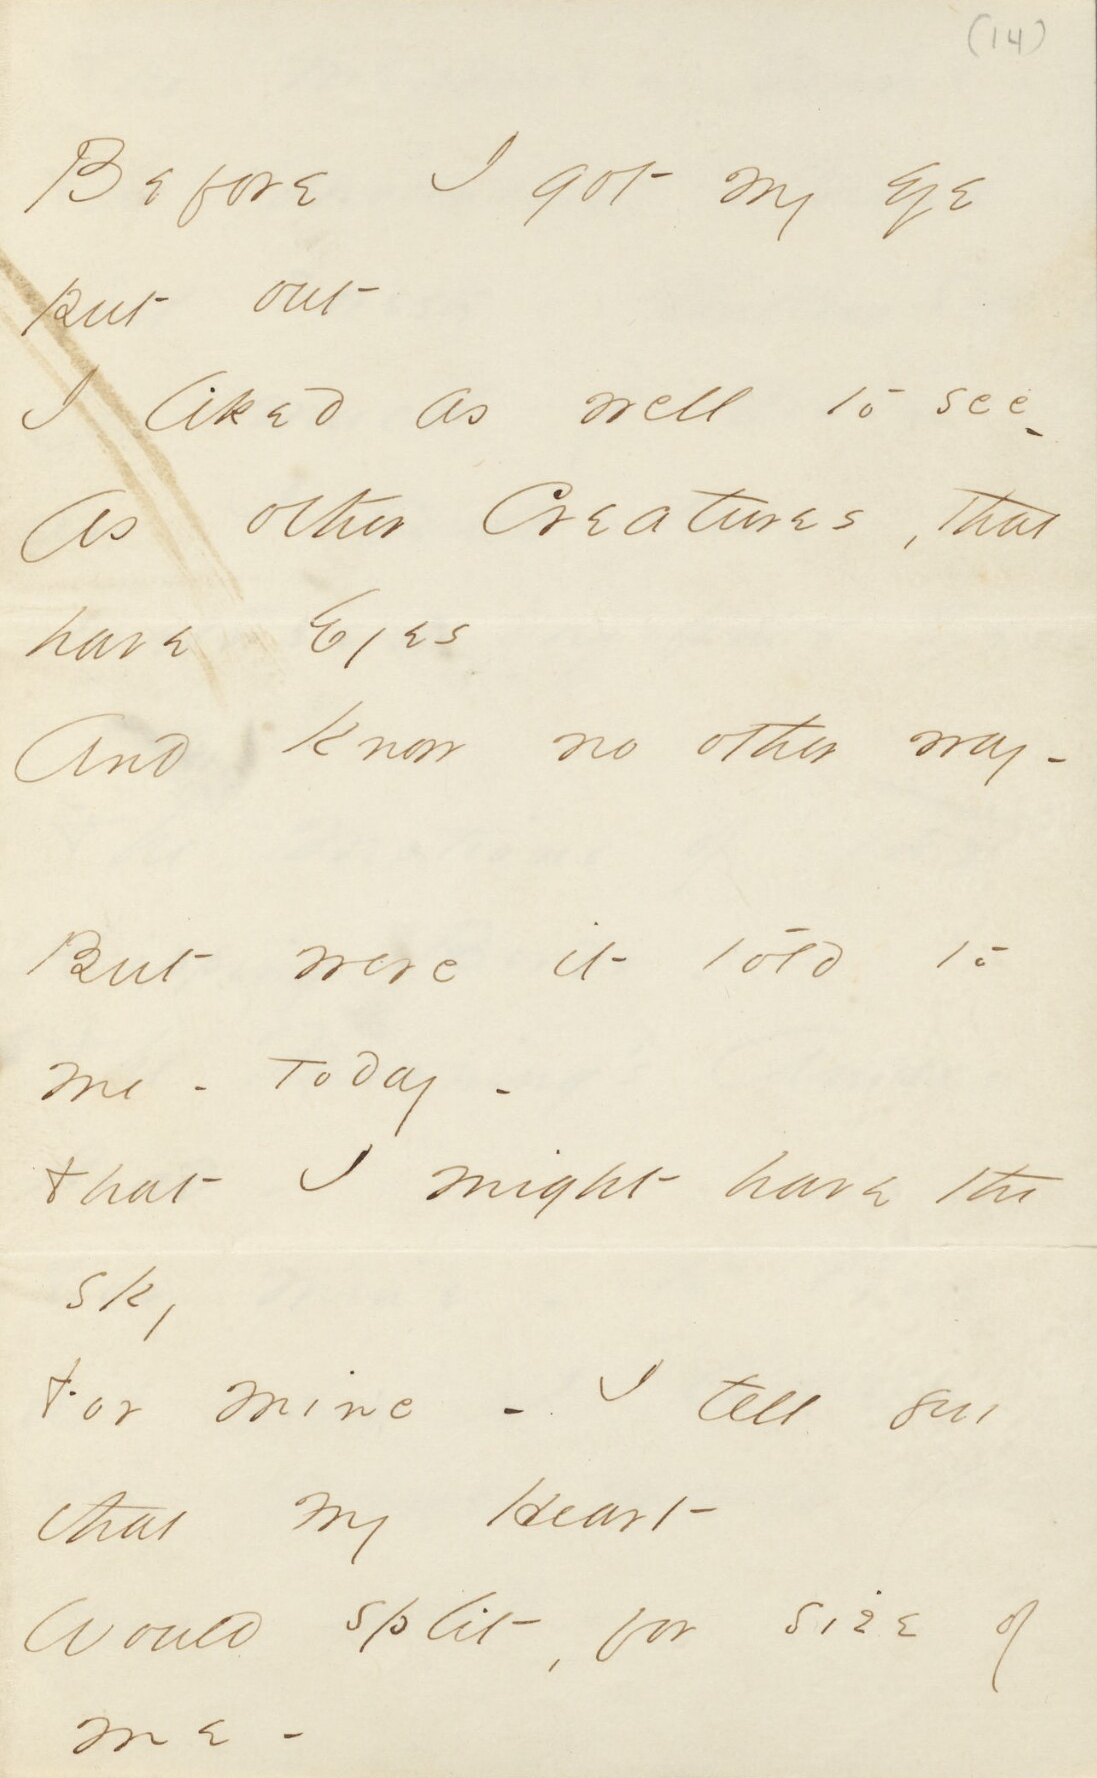 (14)
Before I got my eye
put out
I liked as well to see -
As other Creatures, that
have Eyes
And know no other way -
But were it told to
me - Today -
that I might have the
sky
For mine - I tell you
that my Heart
Would split, for size of
me -